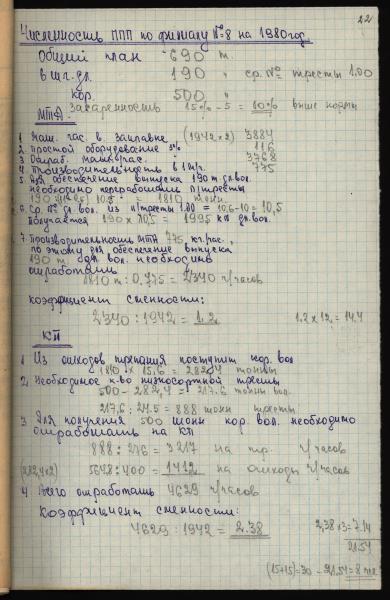 22
Численность ППП по филиалу №8 на 1980 год.
Общий план 690 т.
в т.г. дл. 190 " ср. №= тресты 1.00
кор. 500 "
Закоренность 15% - 5 = 10% выше нормы
МТА
1 Маш. час. в (1942 x 2) 3884
2 Простой оборудования 3% 116
3 Отраб. маш/час. 3768
4 Производительность в 1 м/г. 775
5 Для обеспечения выпуска 190 т. дл. вол.
необходимо переработать п/тресты
190 10,5 = 1810 тонн
6 Ср. № дл вол. из п/тресты 1.00 = 10.6-10 = 10,5
Получается 190 x 10,5 = 1995 кп дл. вол.
7. Производительность МТА 775 кг. час.,
поэтому для обеспечения выпуска
190 т дл. вол. необходимо
отработать
1810 т : 0,775 = 2340 ч/часов
коэффициент сменности:
2340 : 1942 = 1.2 1.2 x 12 = 14.4
КП
1 Из отходов трепания поступит кор. вол
1810 x 15.6 = 282.4 тонны
2 Необходимое к-во низкосортной тресты
500 - 282,4 = 217.6 тонн вол.
217,6 : 24.5 = 888 тонн тресты
3 Для получения 500 тонн кор. вол. необходимо
отработать на КП
888 : 276 = 3217 на тр. ч/часов
(282,4 x 2) 564.8 : 400 = 1412 на отходы ч/часов
4 Всего отработать 4629 ч/часов
Коэффициент сменности:
4629 : 1942 = 2.38 2,38 x 3 = 7.14
21.54
(15+15) = 30 - 21.54 = 8 чел